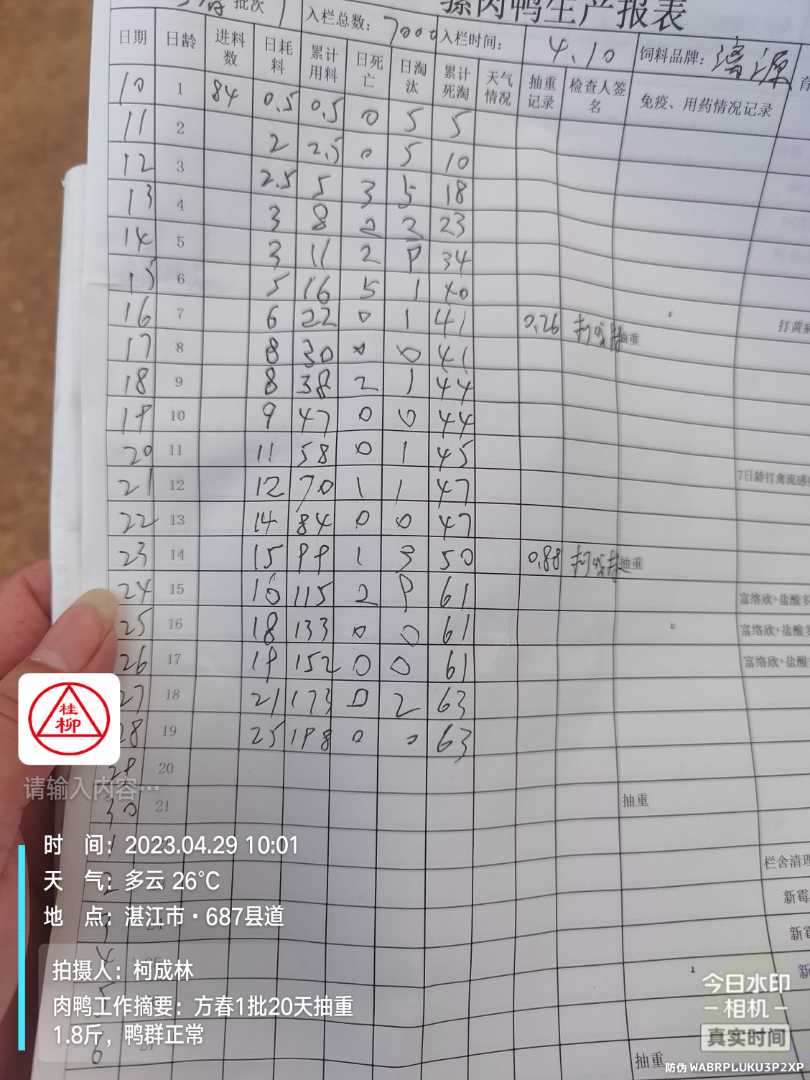 批次 1 入栏总数: 7000 骡肉鸭生产报表
入栏时间: 4.10 饲料品牌:
日期 日龄 进料数 日耗料 累计用料 日死亡 日淘汰 累计死淘 天气情况 抽重记录 检查人签名 免疫、用药情况记录
10 1 84 0.5 0.5 0 5 5
11 2 2 2.5 0 5 10
12 3 2.5 5 3 5 18
13 4 3 8 2 3 23
14 5 3 11 2 9 34
15 6 5 16 5 1 40
16 7 6 22 0 1 41 0.26 抽重 打黄病
17 8 8 30 0 0 41
18 9 8 38 2 1 44
19 10 9 47 0 0 44
20 11 11 58 0 1 45
21 12 12 70 1 1 47 7日龄打禽流感
22 13 14 84 0 0 47
23 14 15 99 1 3 50 0.88 抽重
24 15 16 115 2 9 61 富络欣+盐酸多
25 16 18 133 0 0 61 富络欣+盐酸多
26 17 19 152 0 0 61 富络欣+盐酸多
27 18 21 173 0 2 63
28 19 25 198 0 0 63
29 20
30 21 抽重
1
2 栏舍清理
3 新霉
4 新霉
5 新
6 抽重
桂柳
请输入内容…
时 间：2023.04.29 10:01
天 气：多云 26℃
地 点：湛江市·687县道
拍摄人：柯成林
肉鸭工作摘要：方春1批20天抽重
1.8斤，鸭群正常
今日水印
-相机-
真实时间
防伪 WABRPLUKU3P2XP